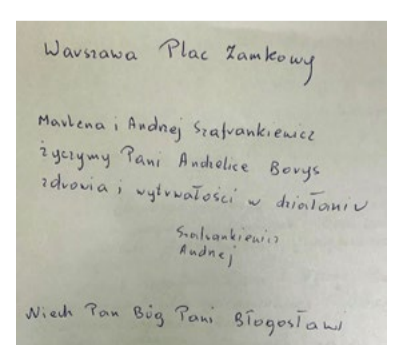 Warszawa Plac Zamkowy
Marlena i Andrzej Szafrankiewicz
życzymy Pani Andżelice Borys
zdrowia i wytrwałości w działaniu
Szafrankiewicz
Andrzej
Niech Pan Bóg Pani Błogosławi